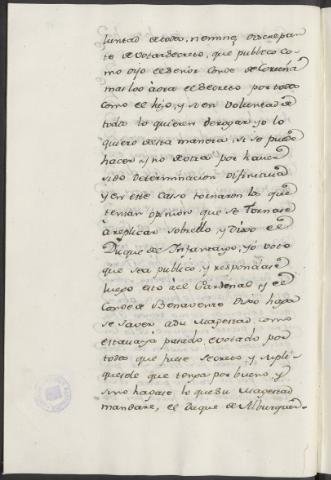 luntad de todos, nemine, discrepan-
te de votar decreto, que publico co-
mo dijo el Señor Conde de Coruña
mas los aora el decreto por todos
como el hijo, y si en voluntad de
todos lo quieren derogar yo lo
quiero desta manera, si se puede
hacer y no de otra por haver
sido determinacion difinitiva
y en este caso tornaron los que
tenian opinion que se tornase
a replicar sobrello y dixo el
Duque del Infantazgo, yo voto
que sea publico, y respondase
luego esto al Cardenal y el
Conde de Benavente dixo hagase
se saver a su Magestad como
estava ya pasado, e votado por
todos que fuese secreto, y supli-
quesele que tenga por bueno y
sino hagase lo que su Magestad
mandare, el Duque de Alburquer.